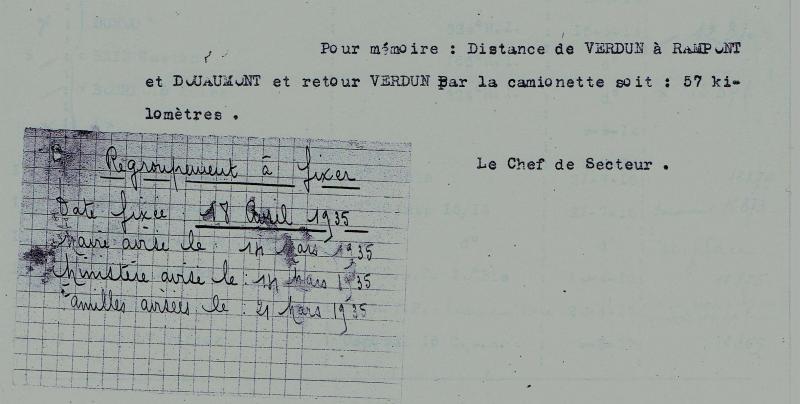 Pour mémoire : Distance de VERDUN à RAMPONT
et DOUAUMONT et retour VERDUN par la camionette soit : 57 ki-
lomètres .
Le Chef de Secteur .
Regroupement à fixer
Date fixée : 18 Avril 1935
Maire avisé le : 14 Mars 1935
Ministère avisé le : 14 Mars 1935
Familles avisées le : 21 Mars 1935